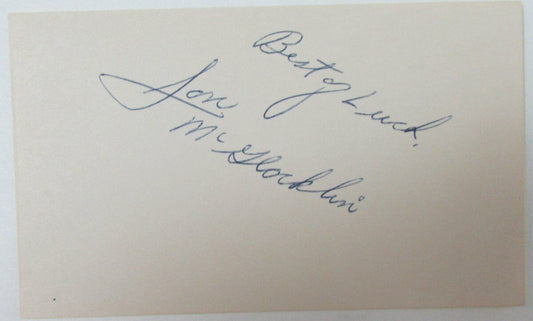 Best of Luck,
Jon
McGlocklin